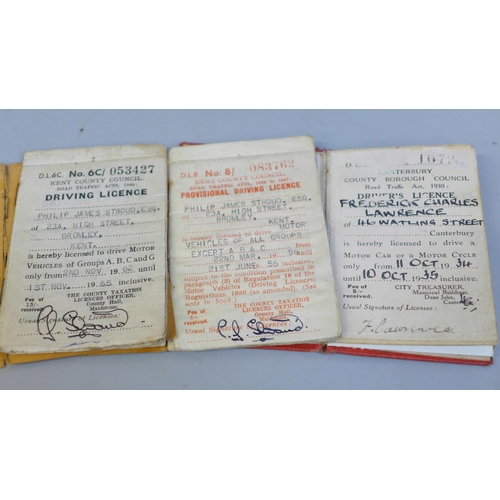 D.L.6C. No. 6C/ 053427
KENT COUNTY COUNCIL
DRIVING LICENCE
PHILIP JAMES STROUD, ESQ.
of 23A, HIGH STREET,
BROMLEY,
KENT.
is hereby licensed to drive Motor
Vehicles of Groups A, B, C and G
only from 2ND NOV. 19
1ST NOV. 1965 inclusive.
Fee of
15/-
received.
THE COUNTY TAXATION
LICENCES OFFICER,
County Hall,
Maidstone.
Usual Signature of Licensee:
D.L.8 No. 8/ 083762
KENT COUNTY COUNCIL
PROVISIONAL DRIVING LICENCE
PHILIP JAMES STROUD, ESQ.
HIGH STREET,
BROMLEY, KENT.
MOTOR
VEHICLES OF ALL GROUPS
EXCEPT A B & C from
22ND MAR. 19
21ST JUNE 55 inclusive
subject to the condition prescribed in
paragraph (B) of Regulation 16 of the
Motor Vehicles (Driving Licences)
Regulations, 1950 (as amended). (See
note in book.)
Fee of
5/-
received.
THE COUNTY TAXATION
LICENCES OFFICER,
County Hall,
Maidstone.
Usual Signature of Licensee:
CANTERBURY
COUNTY BOROUGH COUNCIL
Road Traffic Act, 1930.
DRIVER'S LICENCE
FREDERICK CHARLES
LAWRENCE
of 46 WATLING STREET
Canterbury
is hereby licensed to drive a
MOTOR CAR OR A MOTOR CYCLE
only from 11 OCT 1934
until 10 OCT 1935 inclusive.
Fee of
5/-
received.
CITY TREASURER,
Municipal Buildings,
Dane John,
Canterbury.
Usual Signature of Licensee :
F Lawrence